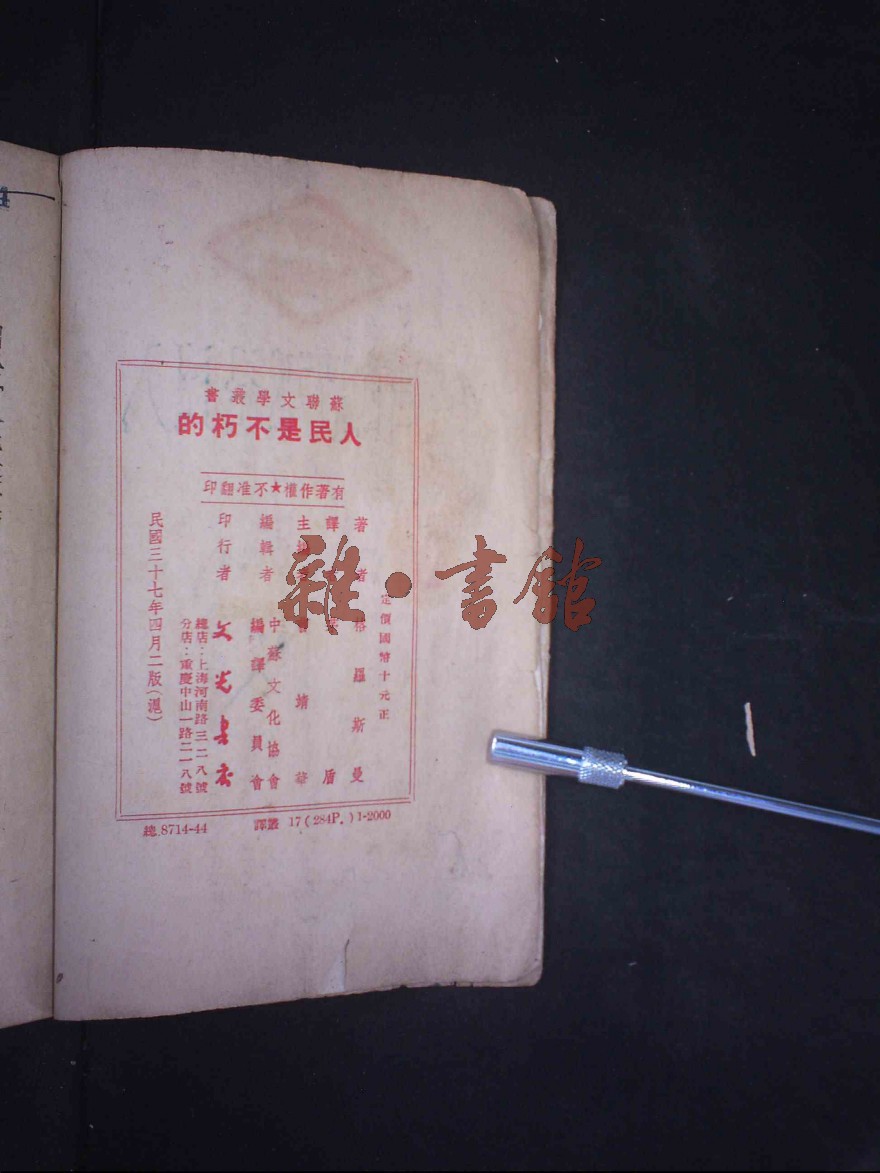 蘇聯文學叢書
人民是不朽的
有著作權★不准翻印
定價國幣十元正
著者 格羅斯曼
譯 盾
主編 靖華
編輯者 中蘇文化協會
編譯委員會
印行者 文光書店
總店：上海河南路三二八號
分店：重慶中山一路二一八號
民國三十七年四月二版(滬)
總.8714-44 譯叢 17(284P.)1-2000
雜·書館